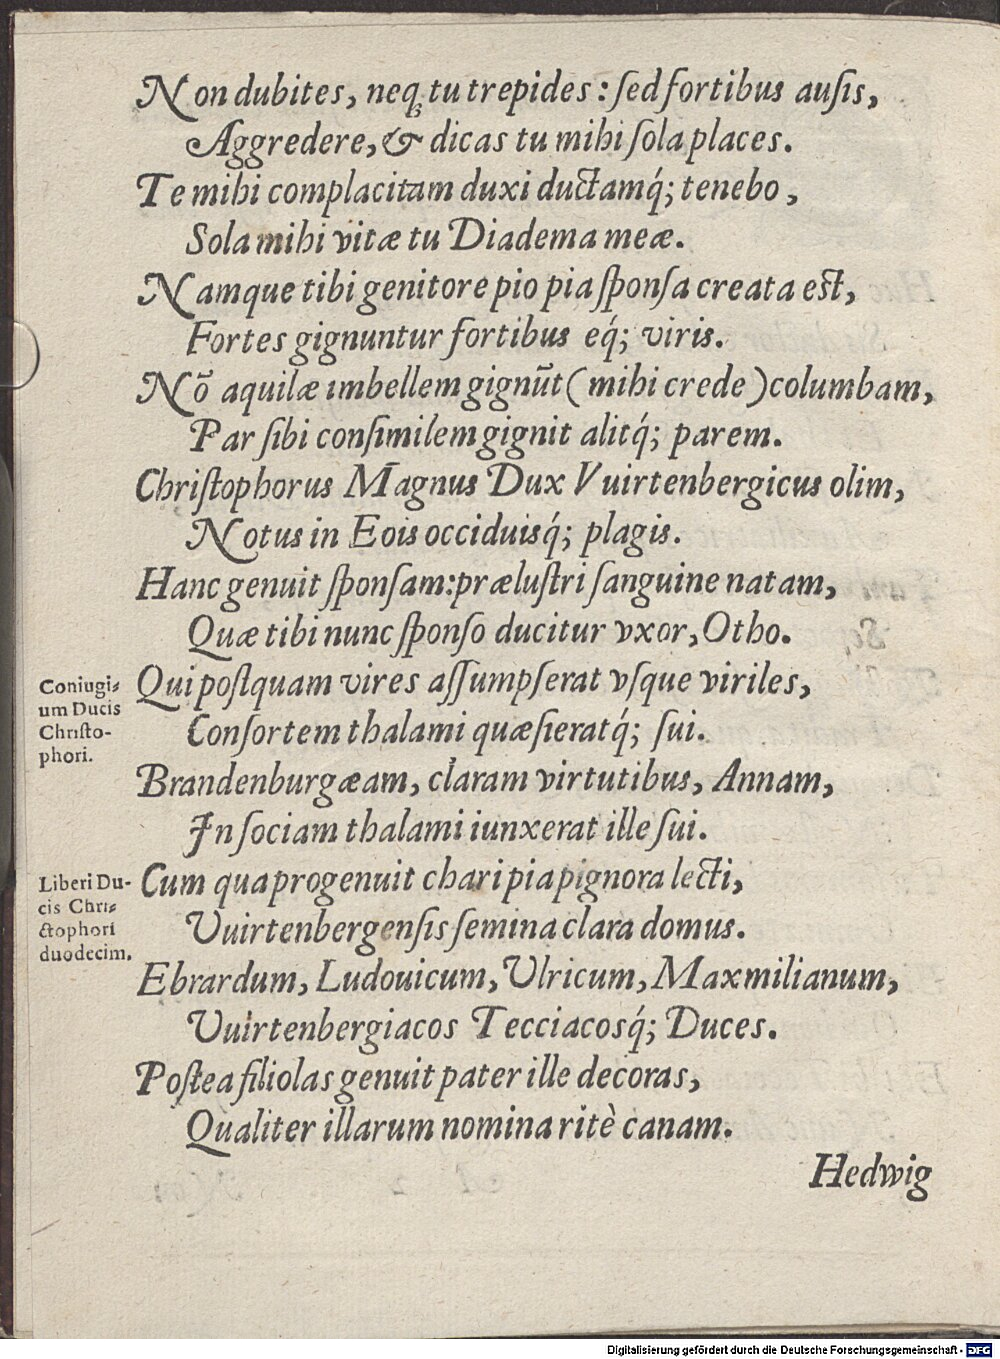 Non dubites, neq; tu trepides: ſed fortibus auſis,
Aggredere, & dicas tu mihi ſola places.
Te mihi complacitam duxi ductamq́; tenebo,
Sola mihi vitæ tu Diadema meæ.
Namque tibi genitore pio pia ſponſa creata eſt,
Fortes gignuntur fortibus eq́; viris.
Nō aquilæ imbellem gignūt (mihi crede) columbam,
Par ſibi conſimilem gignit alitq́; parem.
Chriſtophorus Magnus Dux Vuirtenbergicus olim,
Notus in Eois occiduisq́; plagis.
Hanc genuit ſponſam: præluſtri ſanguine natam,
Quæ tibi nunc ſponſo ducitur vxor, Otho.
Qui poſtquam vires aſſumpſerat vſque viriles,
Conſortem thalami quæſieratq́; ſui.
Brandenburgæam, claram virtutibus, Annam,
In ſociam thalami iunxerat ille ſui.
Cum qua progenuit chari pia pignora lecti,
Vuirtenbergenſis ſemina clara domus.
Ebrardum, Ludouicum, Vlricum, Maxmilianum,
Vuirtenbergiacos Tecciacosq́; Duces.
Poſtea filiolas genuit pater ille decoras,
Qualiter illarum nomina ritè canam.
Hedwig
Coniugi-
um Ducis
Chriſto-
phori.
Liberi Du-
cis Chri-
ſtophori
duodecim.
Digitalisierung gefördert durch die Deutsche Forschungsgemeinschaft - DFG